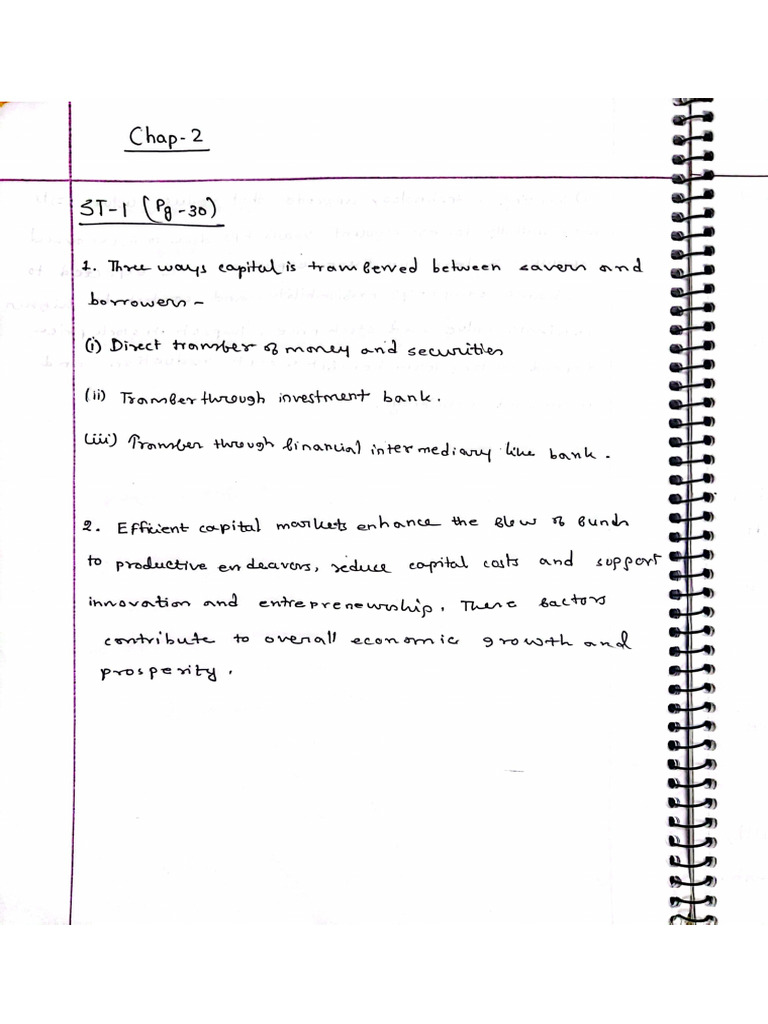 Chap-2
ST-1 (Pg-30)
1. Three ways capital is transferred between savers and
borrowers -
(i) Direct transfer of money and securities
(ii) Transfer through investment bank.
(iii) Transfer through financial intermediary like bank.
2. Efficient capital markets enhance the flow of funds
to productive endeavors, reduce capital costs and support
innovation and entrepreneurship. These factors
contribute to overall economic growth and
prosperity.